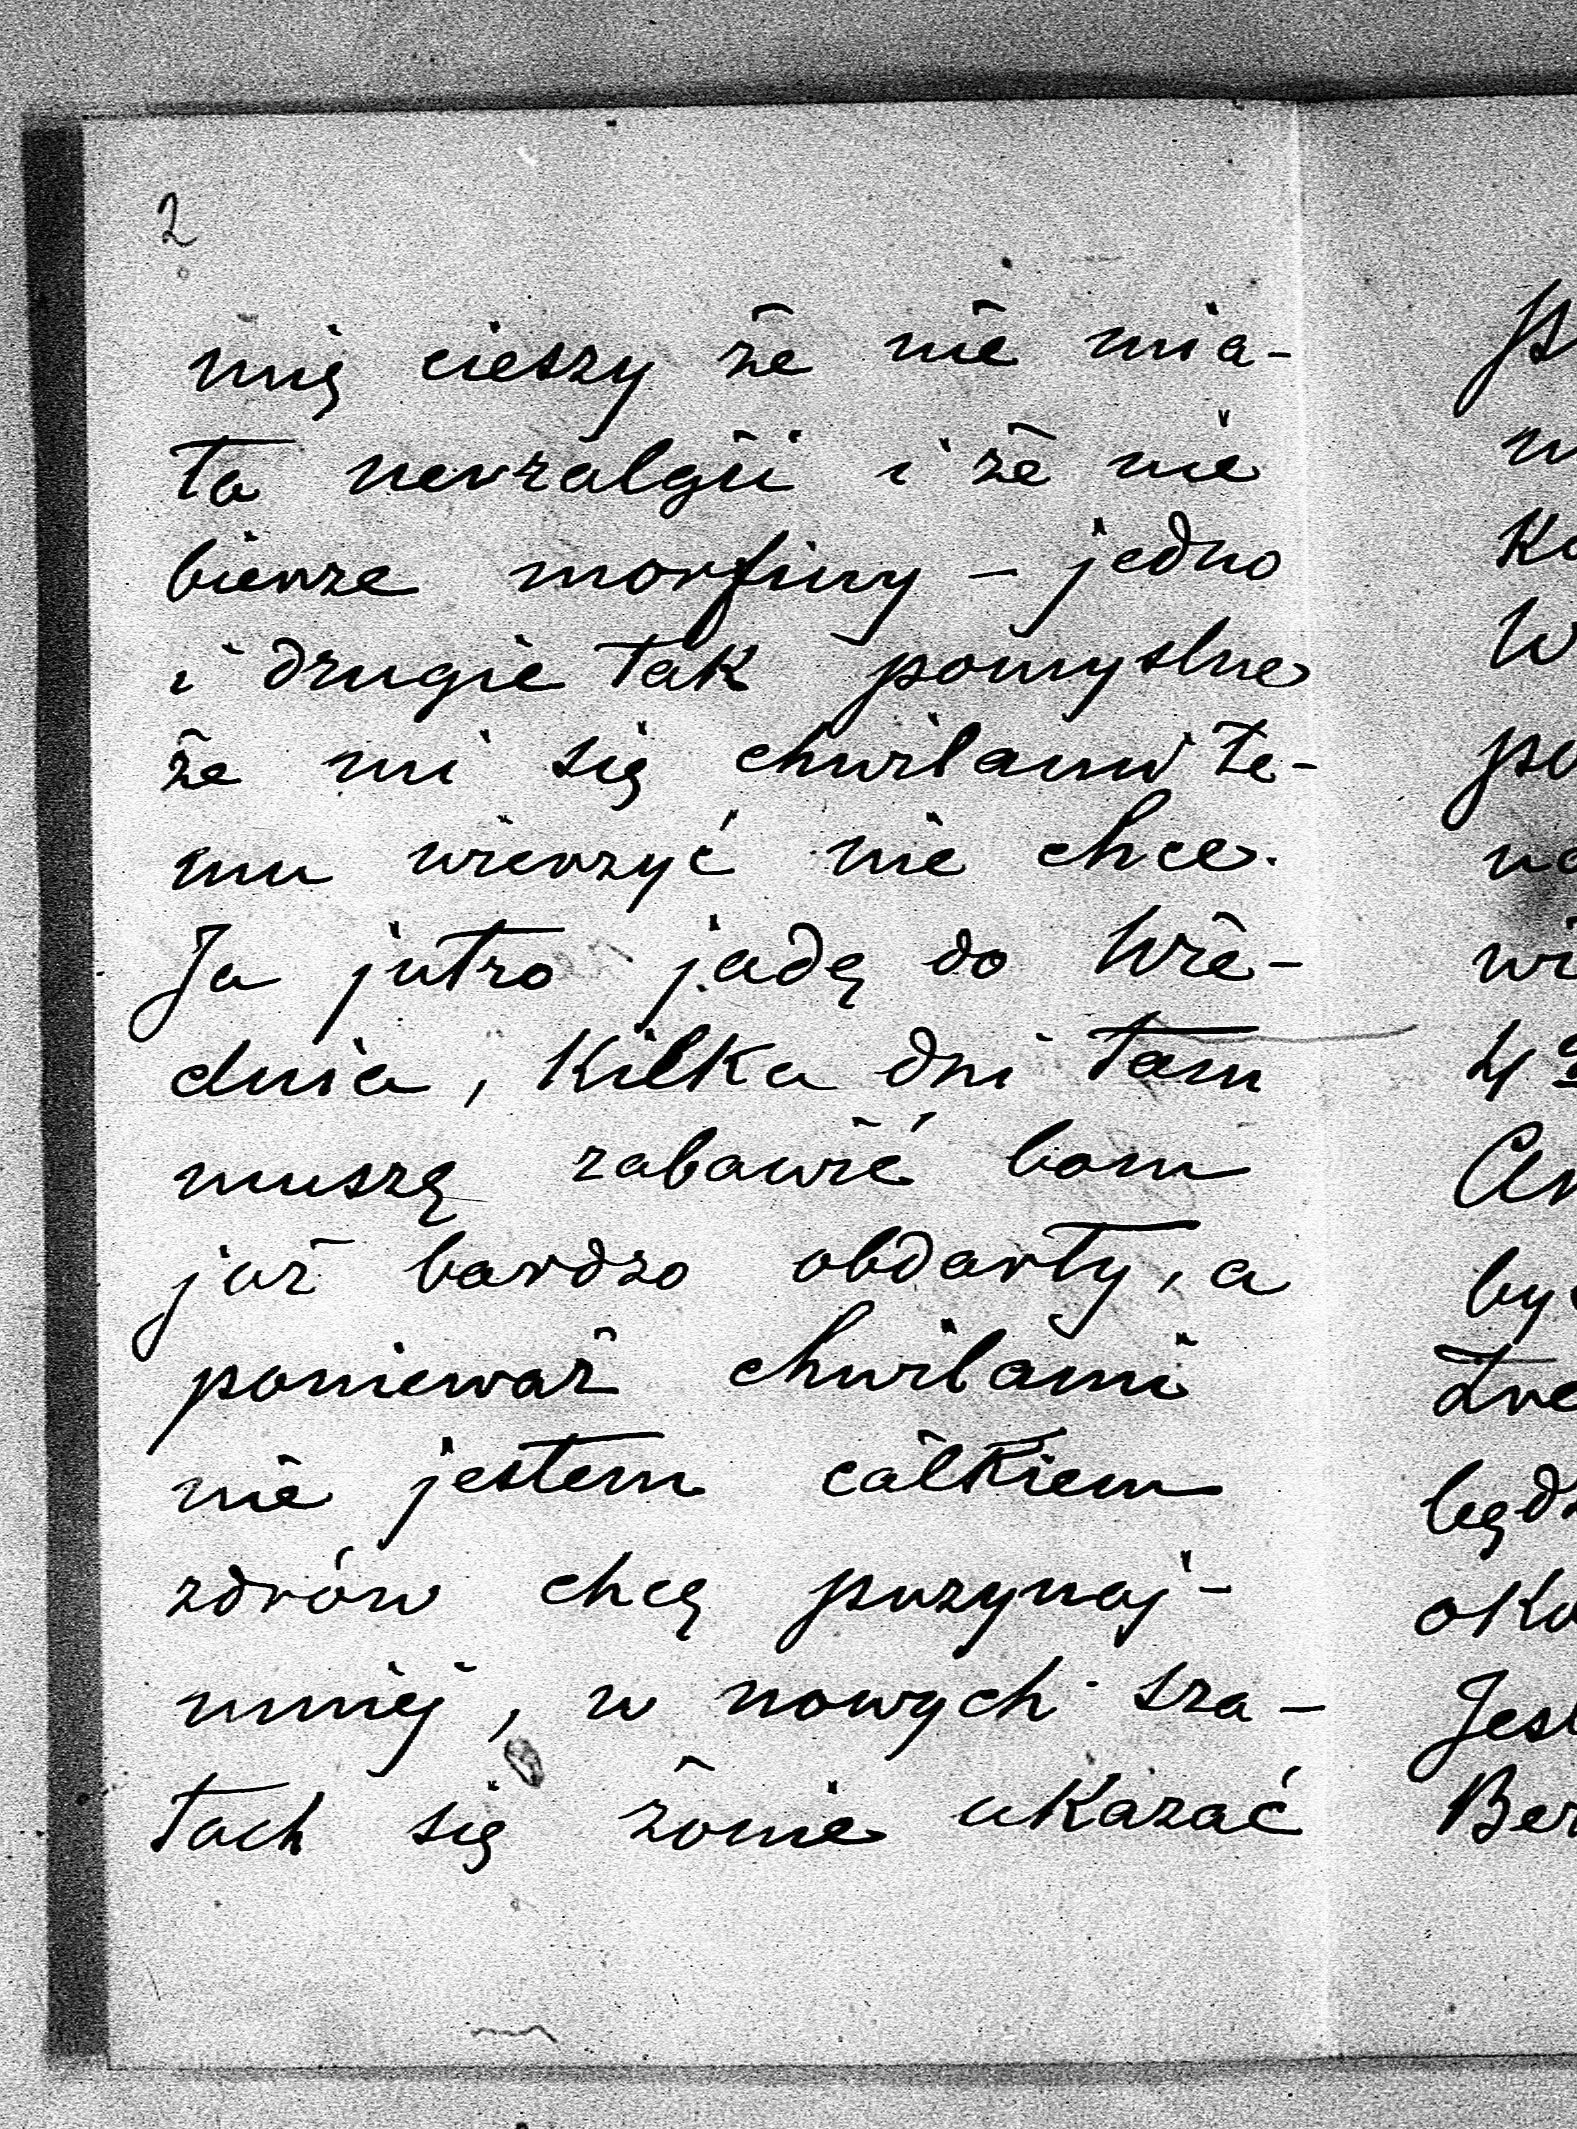 2
mię cieszy że nie mia-
ta nevralgii i że nie
bierze morfiny – jedno
i drugie tak pomyslne
że mi się chwilami te-
mu wierzyć nie chce.
Ja jutro jadę do Wie-
dnia, kilka dni tam
muszę zabawić bom
już bardzo obdarty, a
ponieważ chwilami
nie jestem całkiem
zdrów chcę przynaj-
mniej, w nowych sza-
tach się żonie ukazać